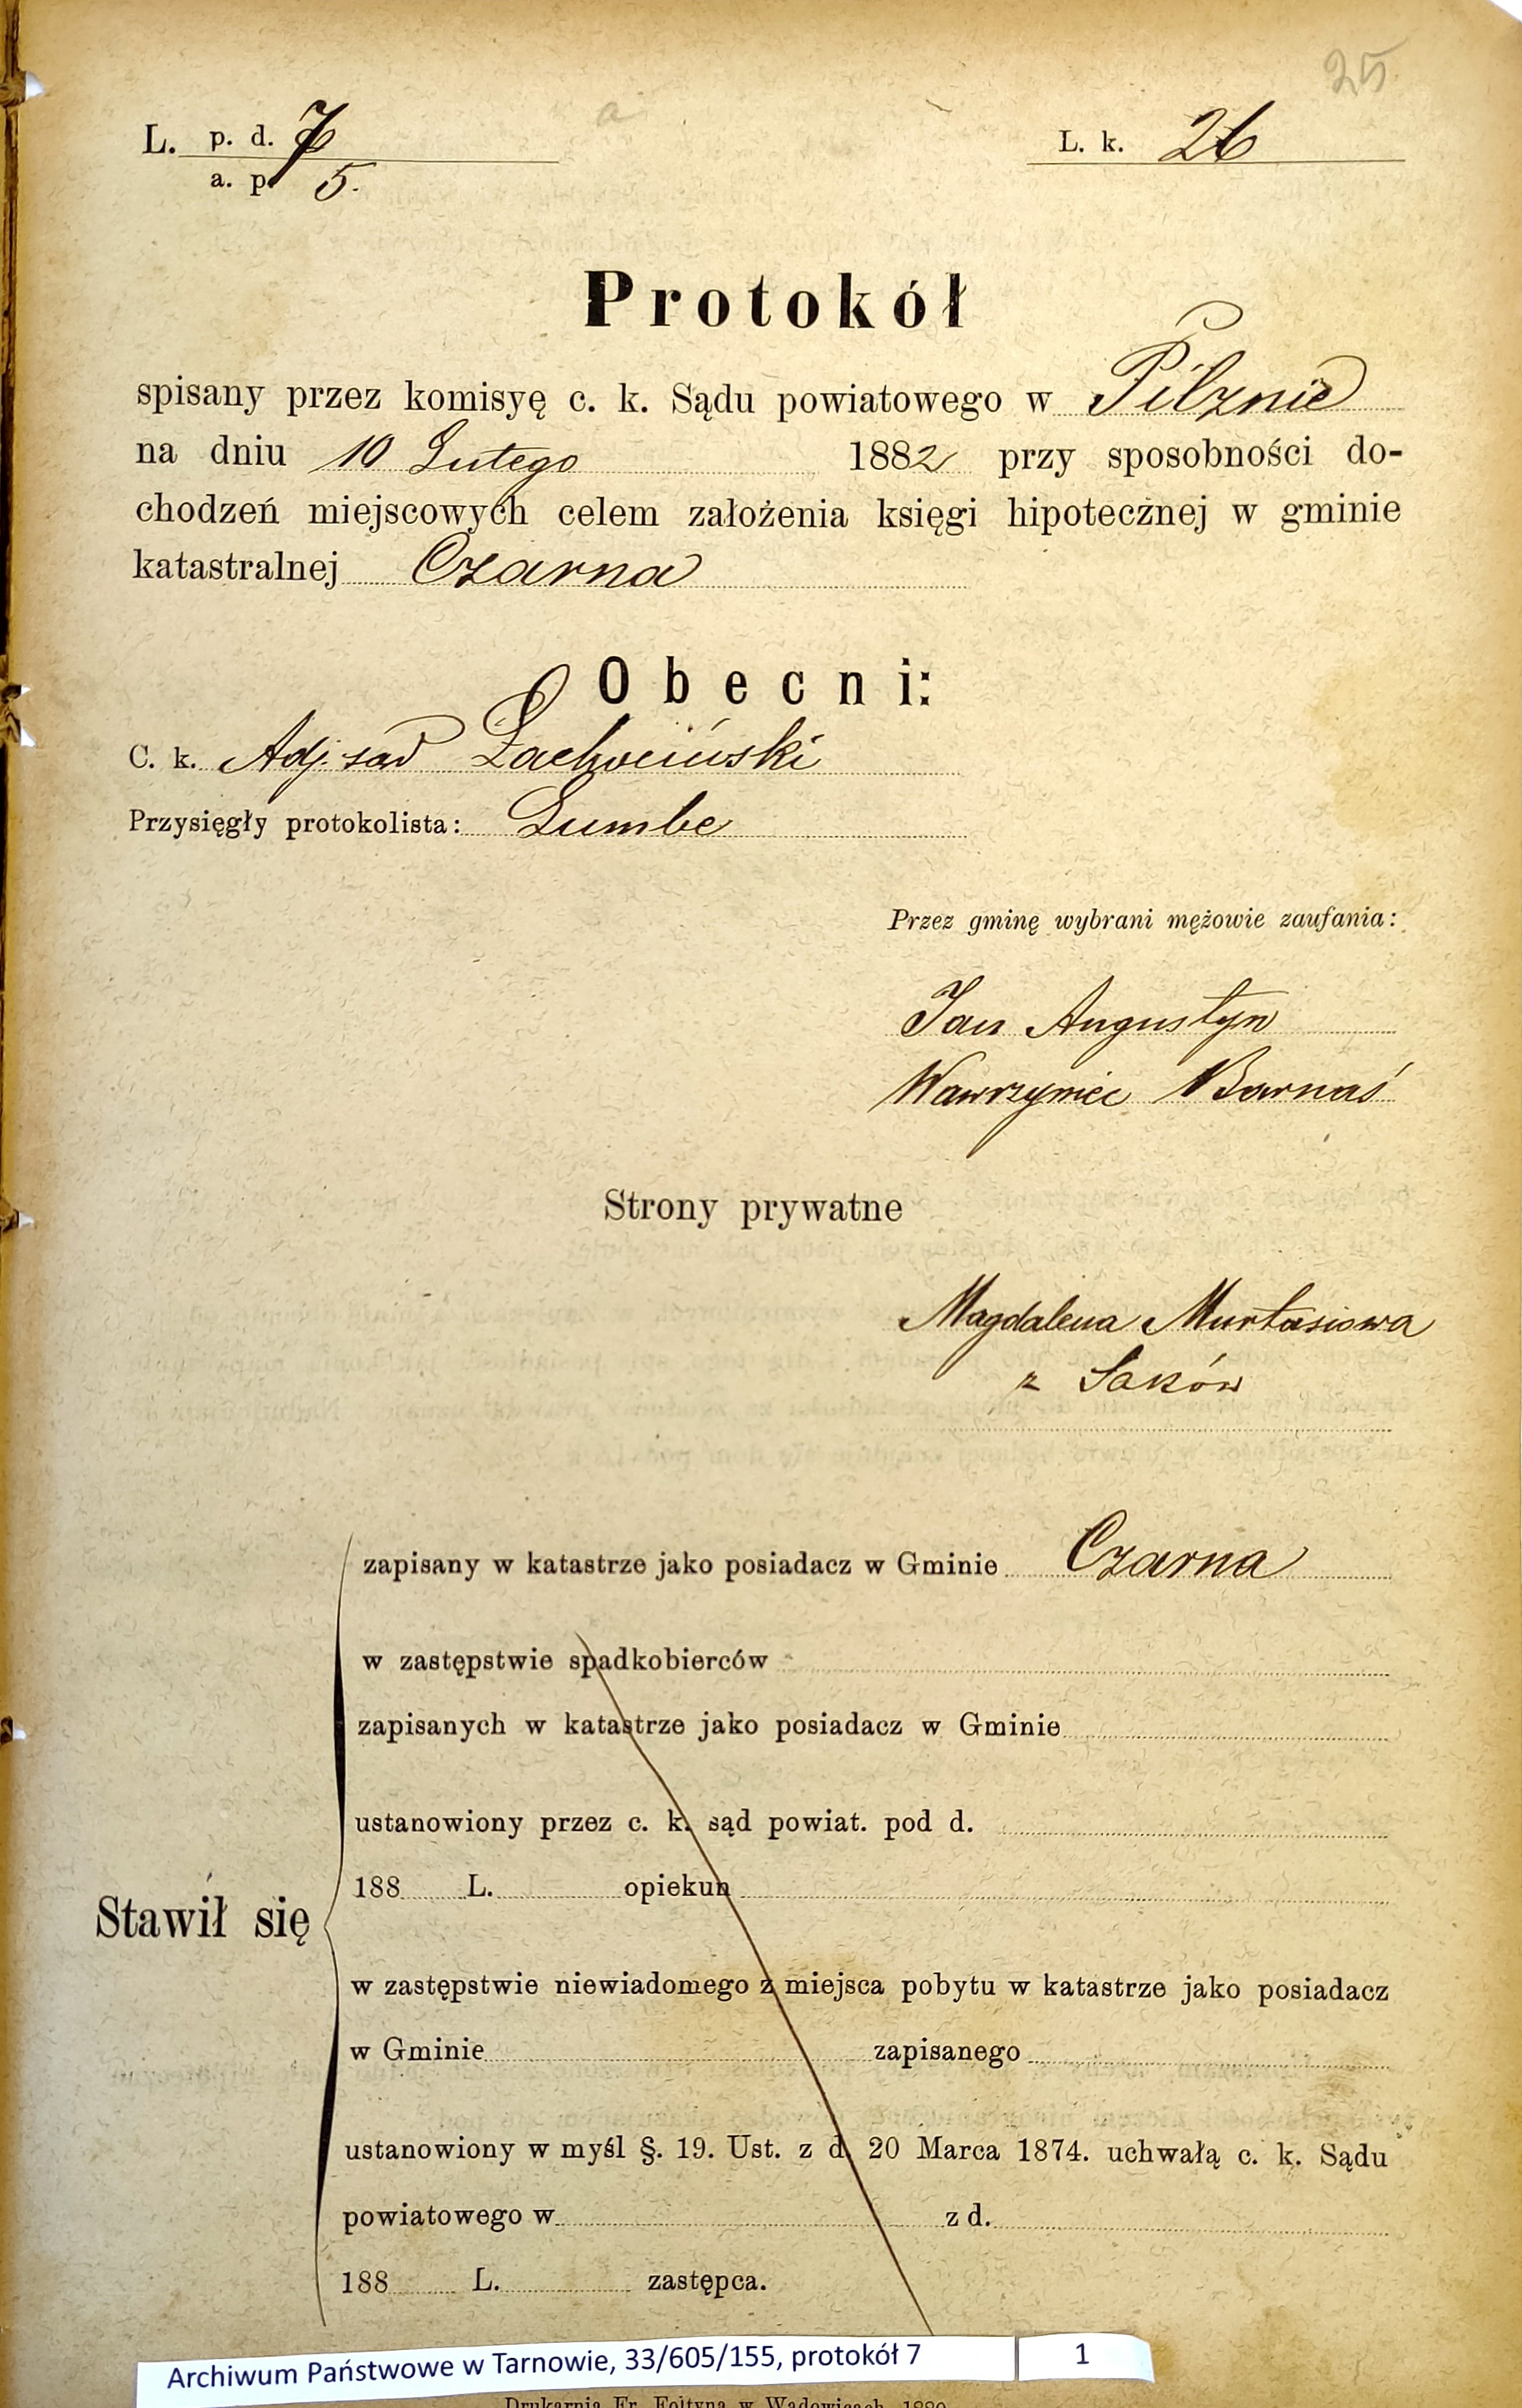 25
L. p. d. 7
a. p. 5.
L. k. 26
Protokół
spisany przez komisyę c. k. Sądu powiatowego w Pilznie
na dniu 10 Lutego 1882 przy sposobności do-
chodzeń miejscowych celem założenia księgi hipotecznej w gminie
katastralnej Czarna
Obecni:
C. k. Adj. sąd
Przysięgły protokolista: Lumbe
Przez gminę wybrani mężowie zaufania:
Jan Augustyn
Wawrzyniec Barnaś
Strony prywatne
Magdalena Murtasiowa
z Saków
zapisany w katastrze jako posiadacz w Gminie Czarna
w zastępstwie spadkobierców
zapisanych w katastrze jako posiadacz w Gminie
ustanowiony przez c. k. sąd powiat. pod d.
188 L. opiekun
Stawił się
w zastępstwie niewiadomego z miejsca pobytu w katastrze jako posiadacz
w Gminie zapisanego
ustanowiony w myśl §. 19. Ust. z d. 20 Marca 1874. uchwałą c. k. Sądu
powiatowego w z d.
188 L. zastępca.
Archiwum Państwowe w Tarnowie, 33/605/155, protokół 7 1
Drukarnia Fr. Foltyna w Wadowicach 1880